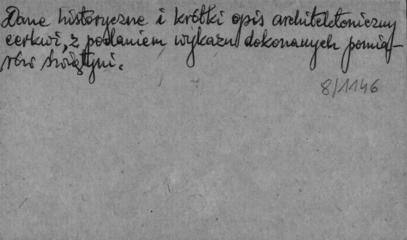 Dane historyczne i krótki opis architektoniczny
cerkwi, z podaniem wykazu dokonanych pomia-
rów świątyni.
8/1146